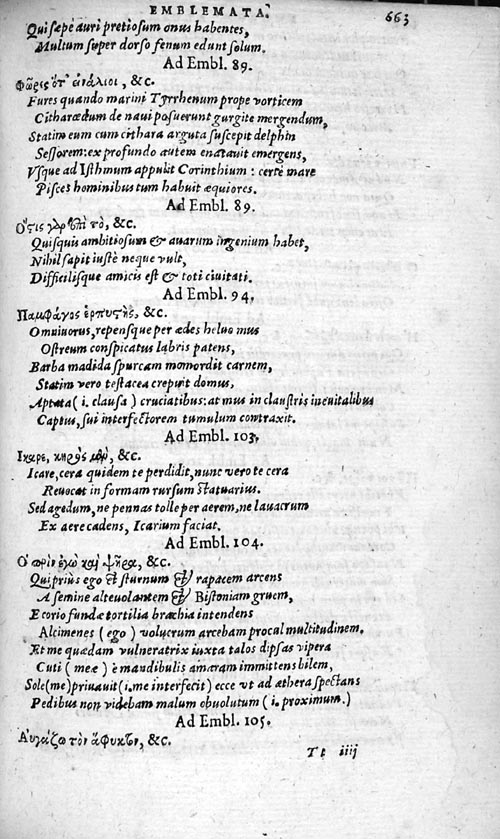 EMBLEMATA. 663
Qui sæpe auri pretiosum onus habentes,
Multum super dorso fenum edunt solum.
Ad Embl. 89.
Φῶρες ὅτ' εἰνάλιοι, &c.
Fures quando marini Tyrrhenum prope vorticem
Citharœdum de naui posuerunt gurgite mergendum,
Statim eum cum cithara arguta suscepit delphin
Sessorem: ex profundo autem enatauit emergens,
Vsque ad Isthmum appulit Corinthium: certè mare
Pisces hominibus tum habuit æquiores.
Ad Embl. 89.
Ὅτις γὰρ ἐπὶ τὸ, &c.
Quisquis ambitiosum & auarum ingenium habet,
Nihil sapit iustè neque vult,
Difficilisque amicis est & toti ciuitati.
Ad Embl. 94.
Παμφάγος ἑρπυστὴς, &c.
Omniuorus, repensque per ædes heluo mus
Ostreum conspicatus labris patens,
Barba madida spurcam momordit carnem,
Statim vero testacea crepuit domus,
Aptata (i. clausa) cruciatibus: at mus in claustris ineuitalibus
Captus, sui interfectorem tumulum contraxit.
Ad Embl. 103.
Ἴκαρε, κηρὸς μὲν, &c.
Icare, cera quidem te perdidit, nunc vero te cera
Reuocat in formam rursum statuarius.
Sed agedum, ne pennas tolle per aerem, ne lauacrum
Ex aere cadens, Icarium faciat.
Ad Embl. 104.
Ὁ πρὶν ἐγὼ καὶ ψῆρα, &c.
Qui priùs ego & sturnum & rapacem arcens
A semine altevolantem & Bistoniam gruem,
E corio fundæ tortilia brachia intendens
Alcimenes (ego) volucrum arcebam procal multitudinem.
Et me quædam vulneratrix iuxta talos dipsas vipera
Cuti (meæ) è mandibulis amaram immittens bilem,
Sole (me) priuauit (i. me interfecit) ecce vt ad æthera spectans
Pedibus non videbam malum obuolutum (i. proximum.)
Ad Embl. 105.
Αὐγάζω τὸν ἄφυκτον, &c.
Tt iiij